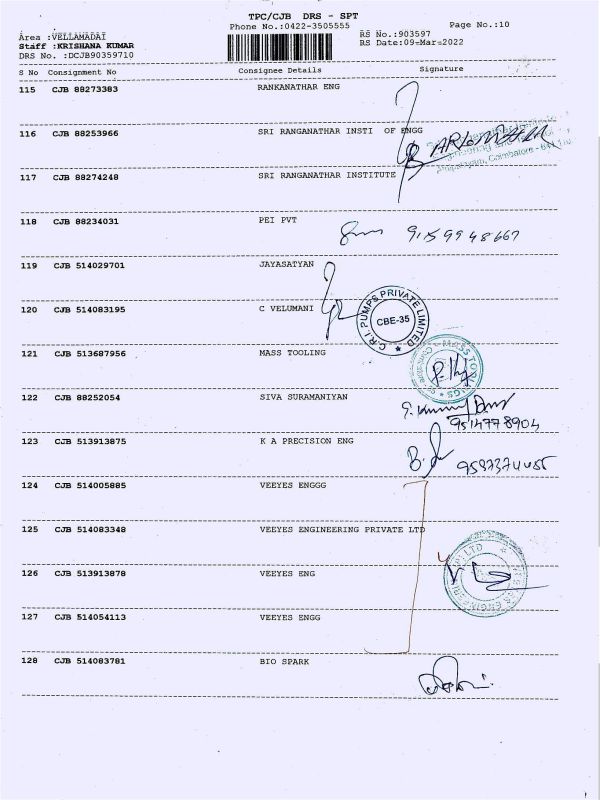 TPC/CJB DRS - SPT
Phone No.:0422-3505555 Page No.:10
Area :VELLAMADAI RS No.:903597
Staff :KRISHANA KUMAR RS Date:09-Mar-2022
DRS No. :DCJB90359710
S No Consignment No Consignee Details Signature
115 CJB 88273383 RANKANATHAR ENG
116 CJB 88253966 SRI RANGANATHAR INSTI OF ENGG
Coimbatore - 641
117 CJB 88274248 SRI RANGANATHAR INSTITUTE
118 CJB 88234031 PEI PVT
9159948667
119 CJB 514029701 JAYASATYAN
120 CJB 514083195 C VELUMANI
C.R.I. PUMPS PRIVATE LIMITED
CBE-35
121 CJB 513687956 MASS TOOLING
MASS TOOLINGS
122 CJB 88252054 SIVA SURAMANIYAN
9514778904
123 CJB 513913875 K A PRECISION ENG
124 CJB 514005885 VEEYES ENGGG
125 CJB 514083348 VEEYES ENGINEERING PRIVATE LTD
126 CJB 513913878 VEEYES ENG
127 CJB 514054113 VEEYES ENGG
128 CJB 514083781 BIO SPARK